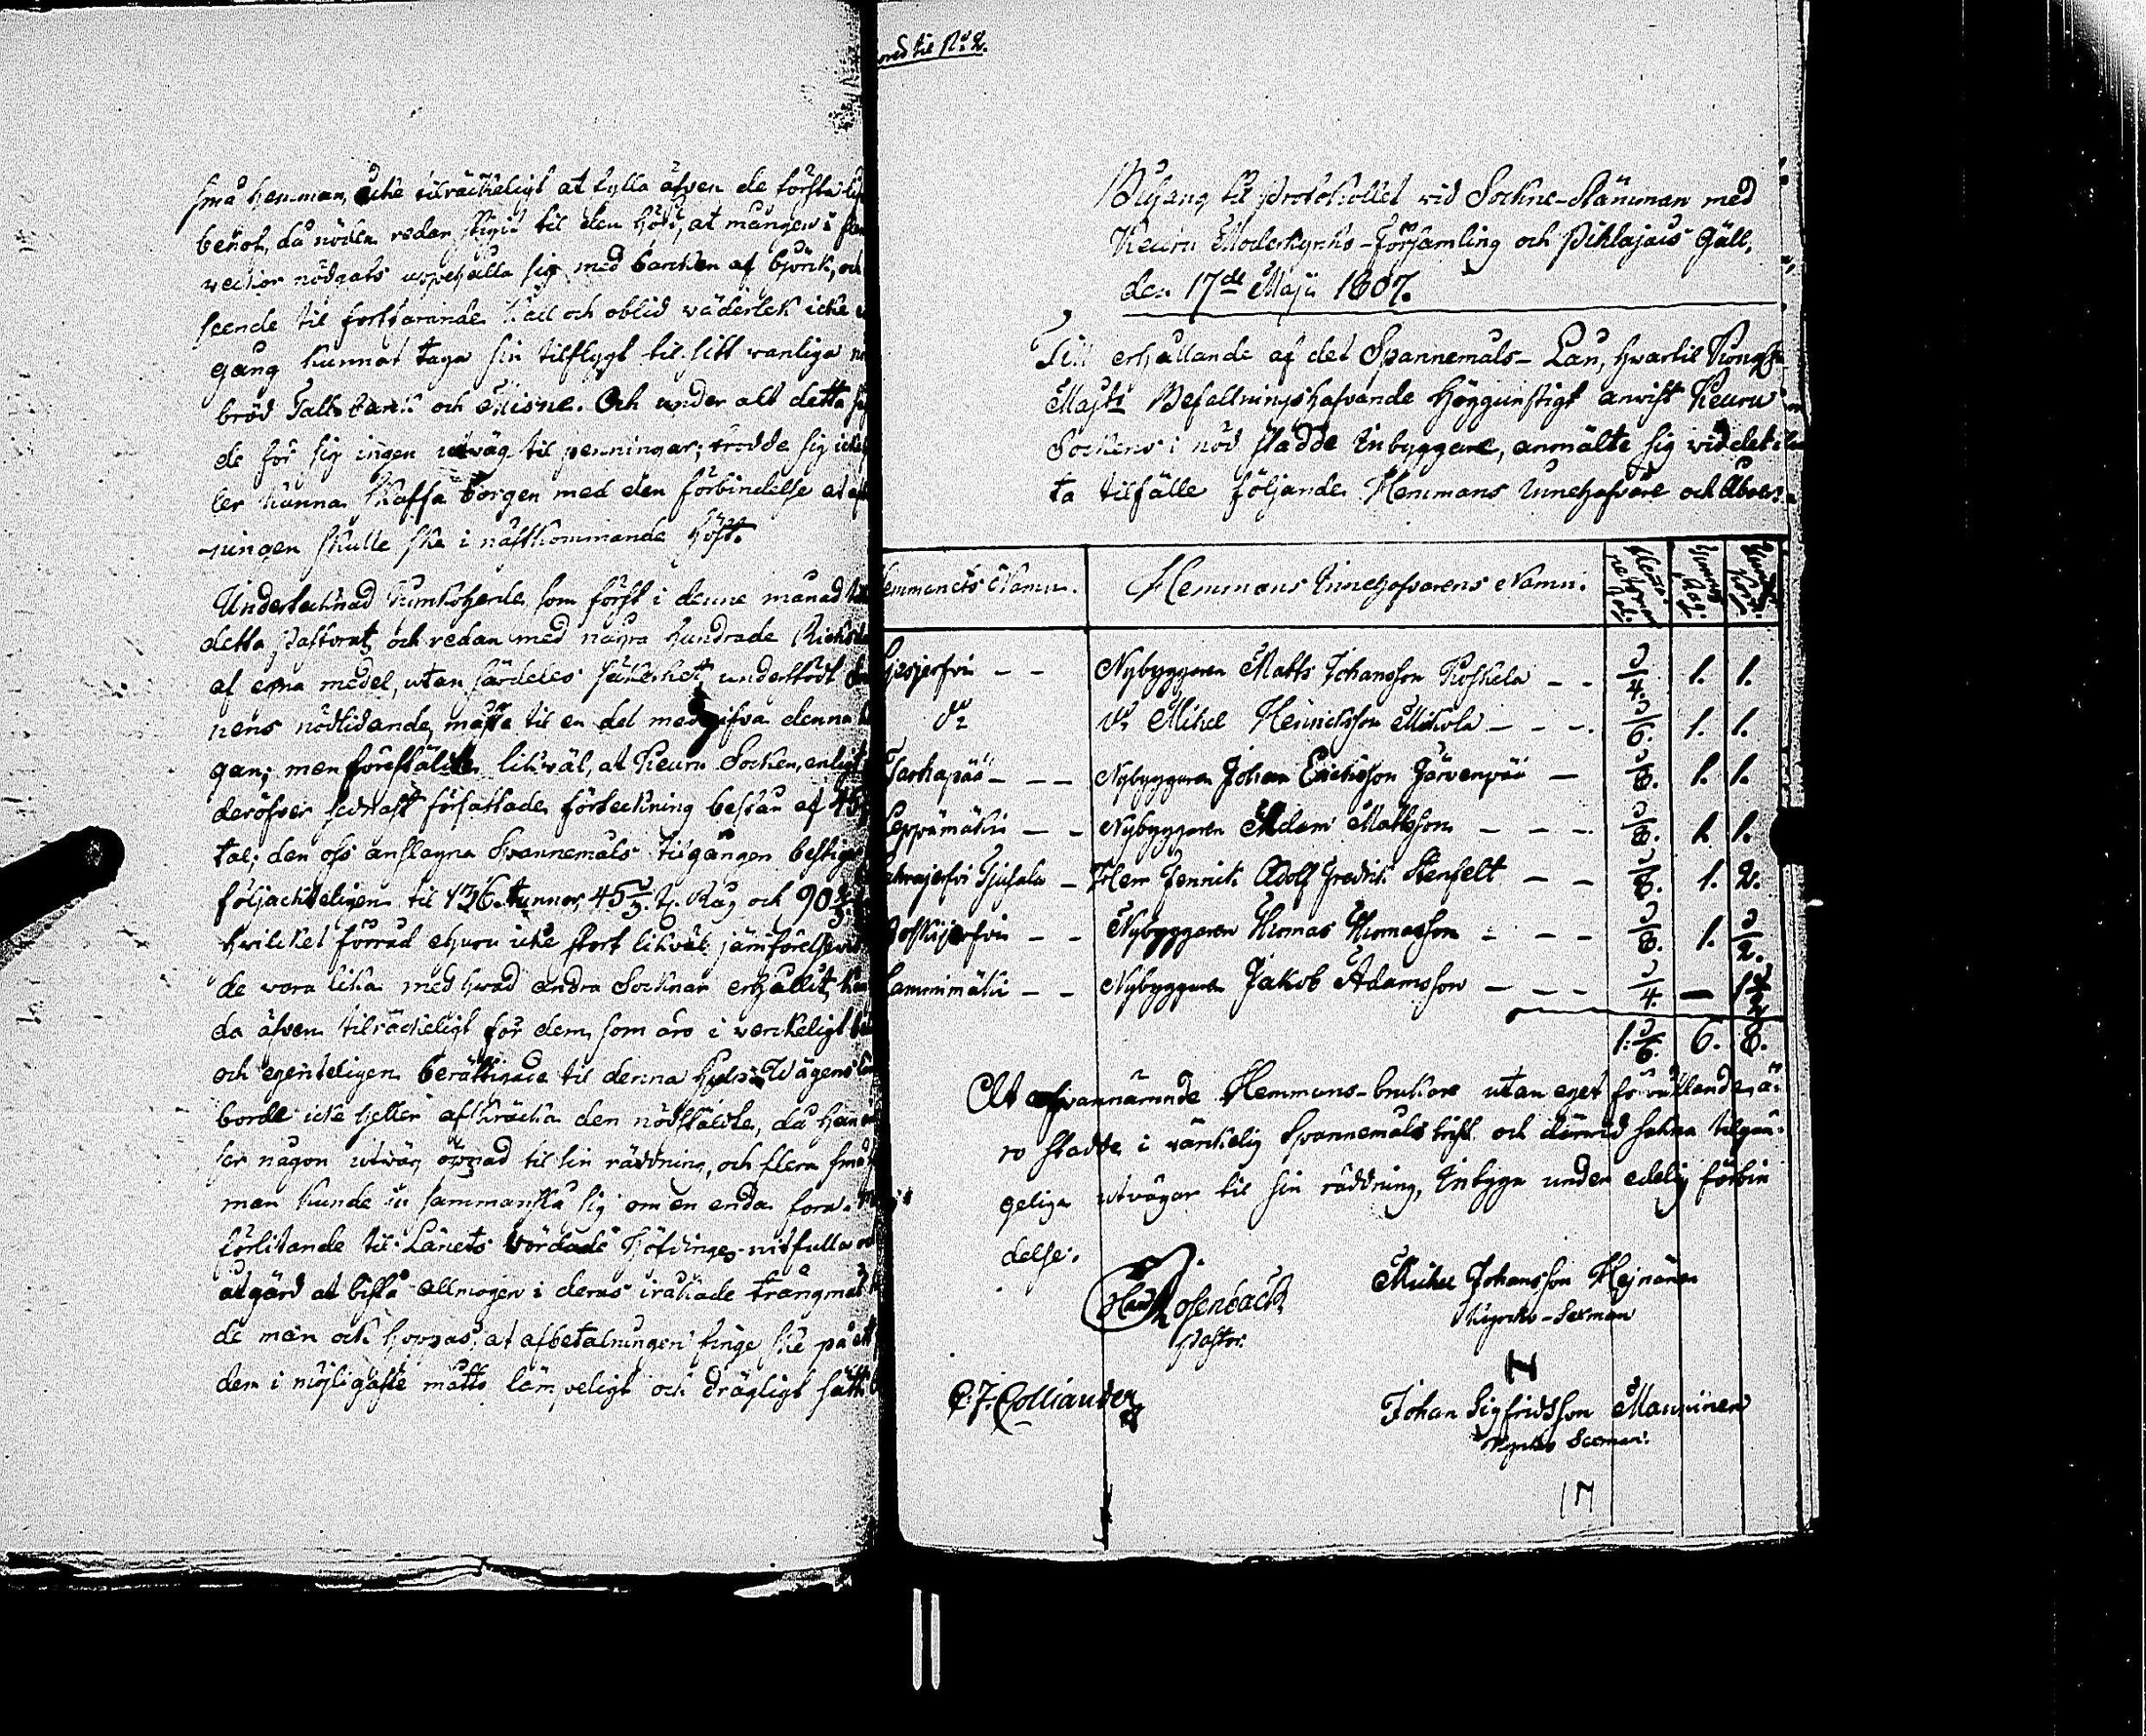 små hemman, icke tilräckeligt at fylla äfven de första
behof, då nöden redan stigit til den högd, at mången i
veckor nödgats uppehålla sig med barken af björk, och
seende til fortfarande käll och oblid väderlek icke
gång kunnat taga sin tilflygt til sitt vanliga
bröd Tallbark och Misne. Och under alt detta
de för sig ingen utväg til penningar; trodde sig icke
ler kunna skaffa borgen med den förbindelse at
ningen skulle ske i nästkommande höst.
Undertecknad Kyrkoherde, som först i denne månad
detta Pastorat, och redan med några hundrade Riksd
af egna medel, utan särdeles säkerhet, understödt
nens nödlidande, måste til en del medgifva denna
gan; men föreställte likväl, at Keuru Socken, enligt
deröfver sednast författade förteckning bestan af 45
tal; den oss anslagna Spannemåls tilgången bestiger
följackteligen til 136 tunnor, 45 2/3 t. Råg och 90 2/3
hvilcket förråd ehuru icke stort likväl jämförelsevis
de vara lika med hvad andra Socknar erhållit, kan
da äfven tilräckeligt för dem, som äro i verckeligt
och egenteligen berättigade til denna hjelp. Vägens
borde icke heller afskräcka den nödställde, då han
ser någon utväg öppnad til sin räddning, och flera små
man kunde ju sammanslå sig om en enda fora.
förlitande til Länets vördade Höfdinges nitfulla
åtgärd at bistå allmogen i deras iråkade trångmål
de man ock hoppas, at afbetalningen finge ske på ett
dem i möjligaste måtto lämpeligt och drägligt sätt
til No 2.
Bihang til Protokollet vid Sockne-Stämman med
Keuru Moderkyrko-Församling och Pihlajavis Gäll,
den 17de Maji 1807.
Till erhållande af det Spannemåls-Lån, hvartil Kongl
Majts Befallningshafvande Höggunstigt anvist Keuru
Sockens i nöd stadde Inbyggare, anmälte sig vid det
ta tilfälle följande Hemmans Innehafvare och Åboer
Hemmanets Namn. Hemmans Innehafvarens Namn.
Nybyggaren Matts Johansson Koskela 1/4. 1. 1.
Do Do Mikel Henricksson Mikola 1/6. 1. 1.
Tarhapää Nybyggaren Johan Ericksson Järvenpää 1/8. 1. 1.
Leppämäki Nybyggaren Adam Mattsson 1/8. 1. 1.
Herr Fenrick Adolf Fredrik Stenfelt 1/8. 1. 2.
Nybyggaren Thomas Thomasson 1/8. 1. 1/2.
Lamminmäki Nybyggaren Jakob Adamsson 1/4. — 1 1/2
1. 1/6. 6. 8.
At ofvannämnde Hemmans-brukare utan eget förvållande ä-
ro stadde i värkelig Spannemåls brist och därvid sakna tilgän-
geliga utvägar til sin räddning, Intyga under edelig förbin
delse.
Rosenback
Pastor.
Mickel Johansson Hejnänen
Kyrko-Sexman
C. F. Colliander
Johan Sigfridsson Manninen
Kyrko Sexman.